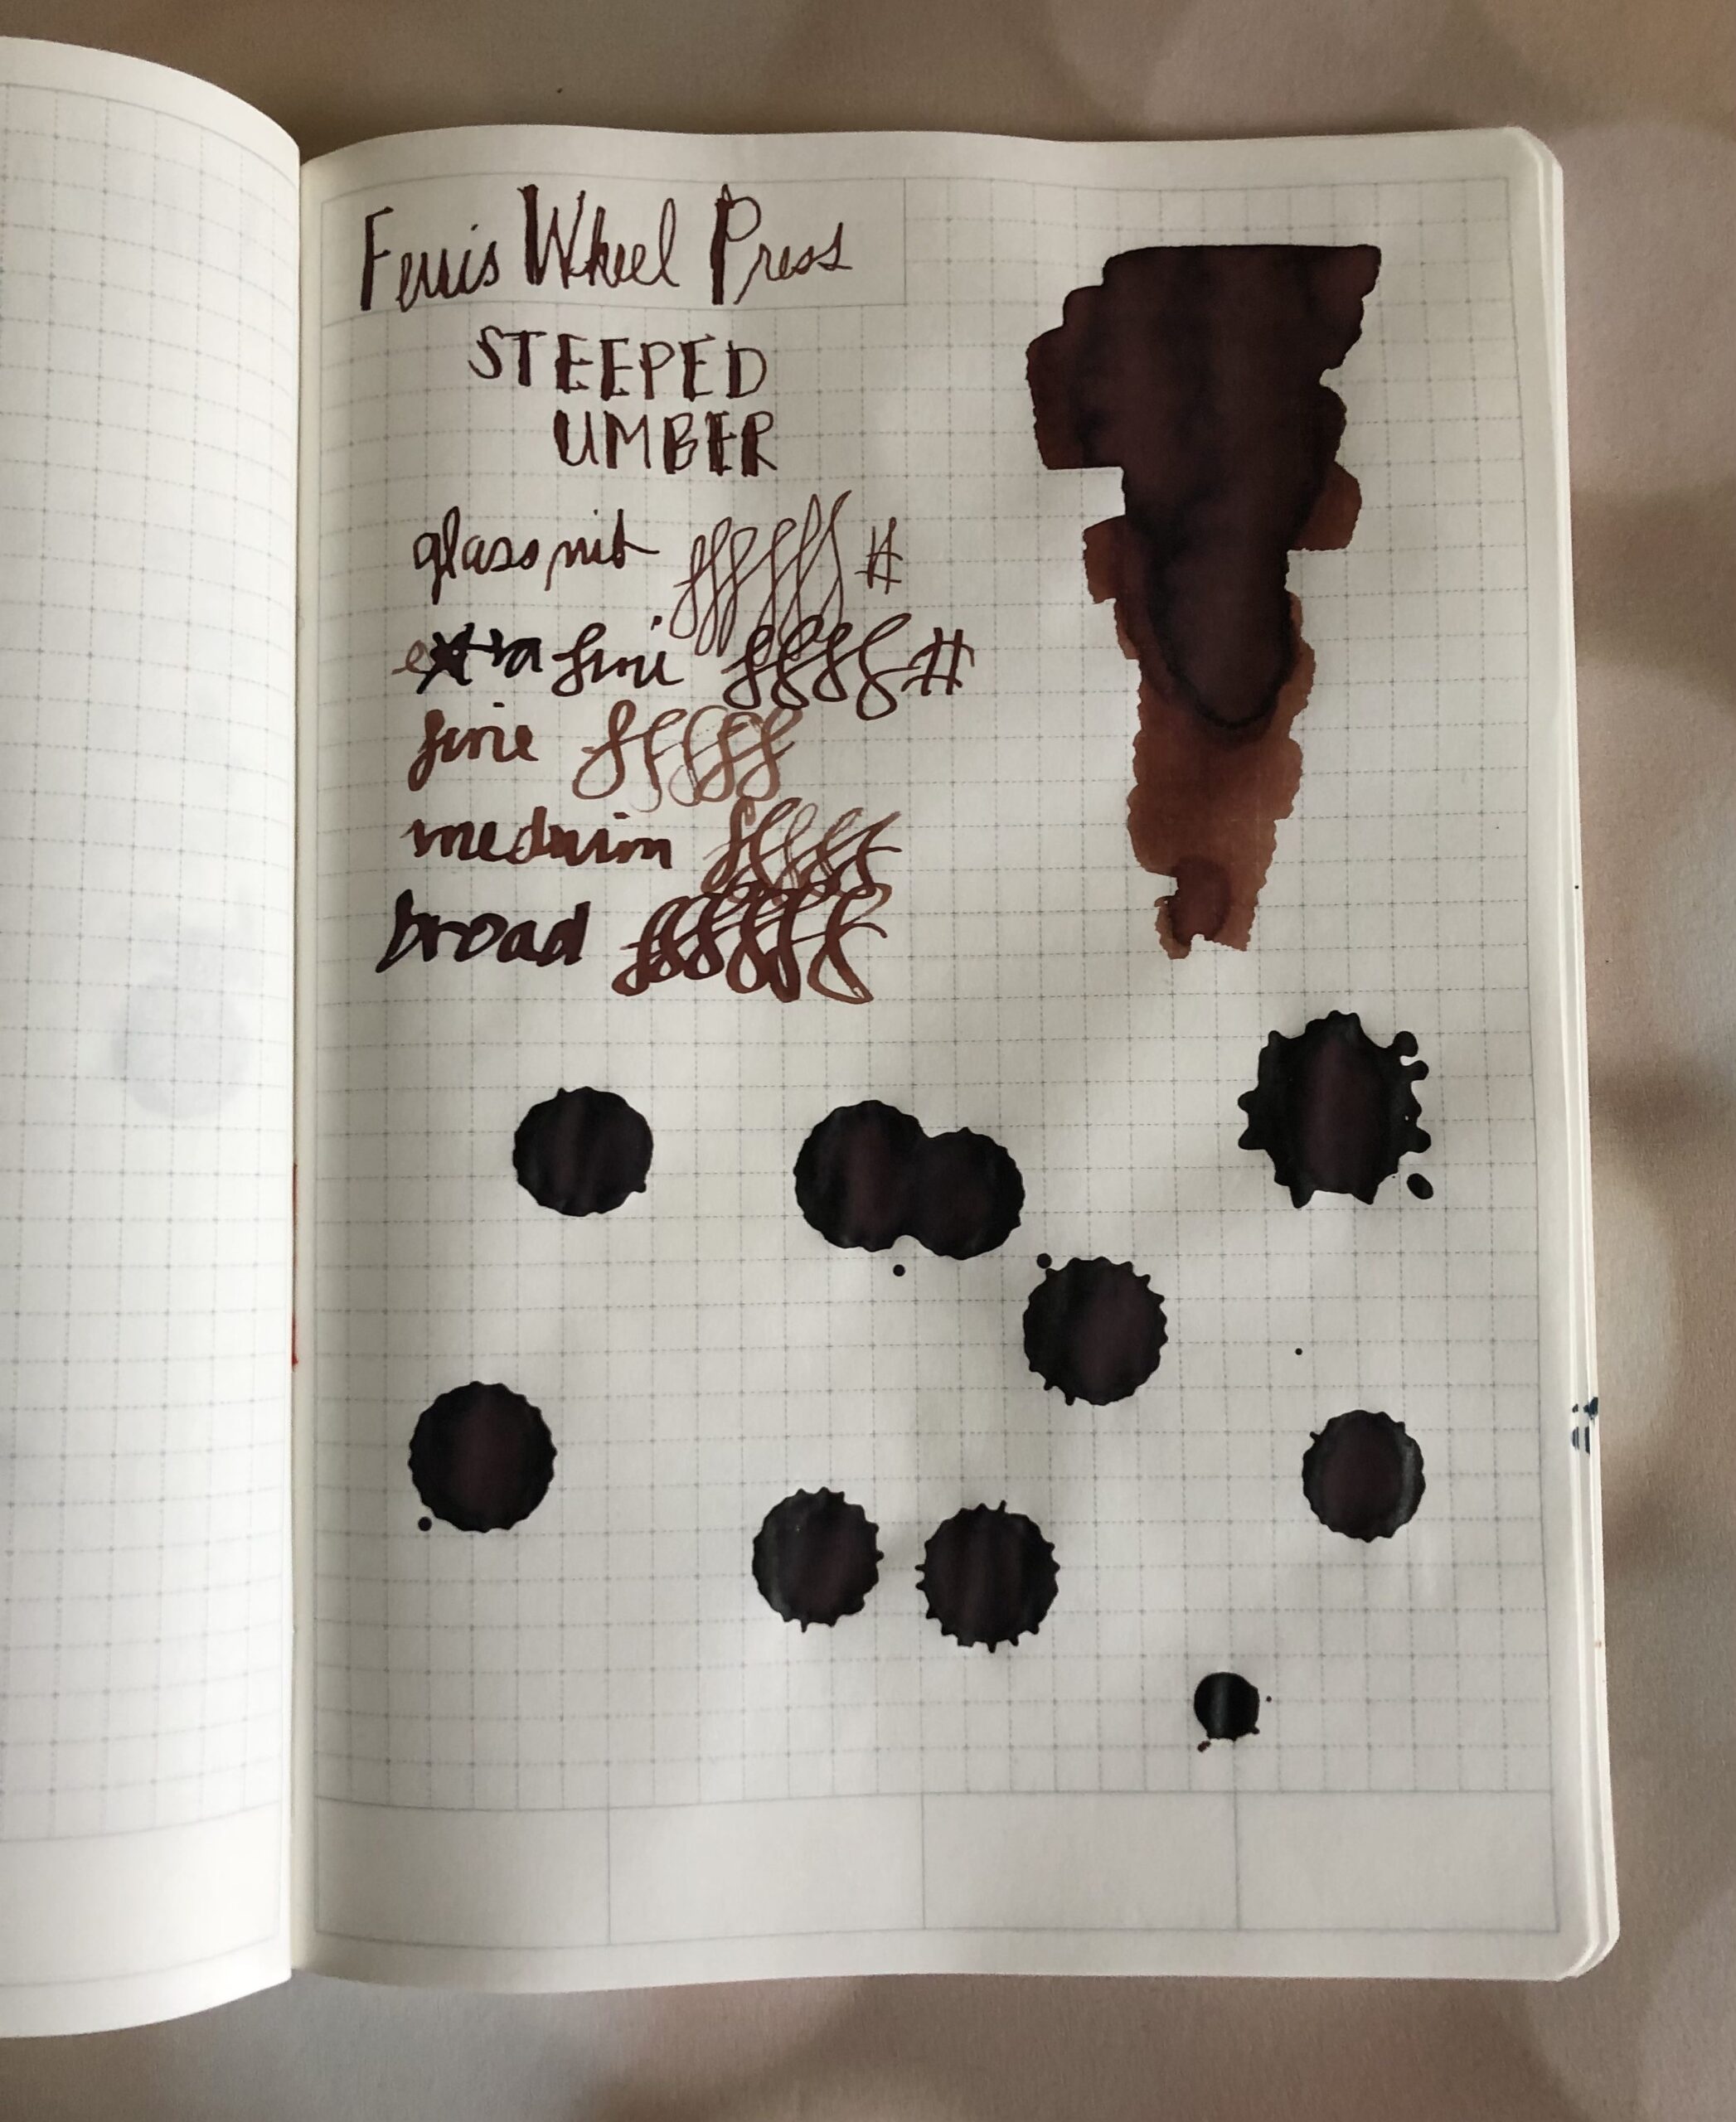 Ferris Wheel Press
STEEPED
UMBER
glass nib #
extra fine #
fine
medium
broad